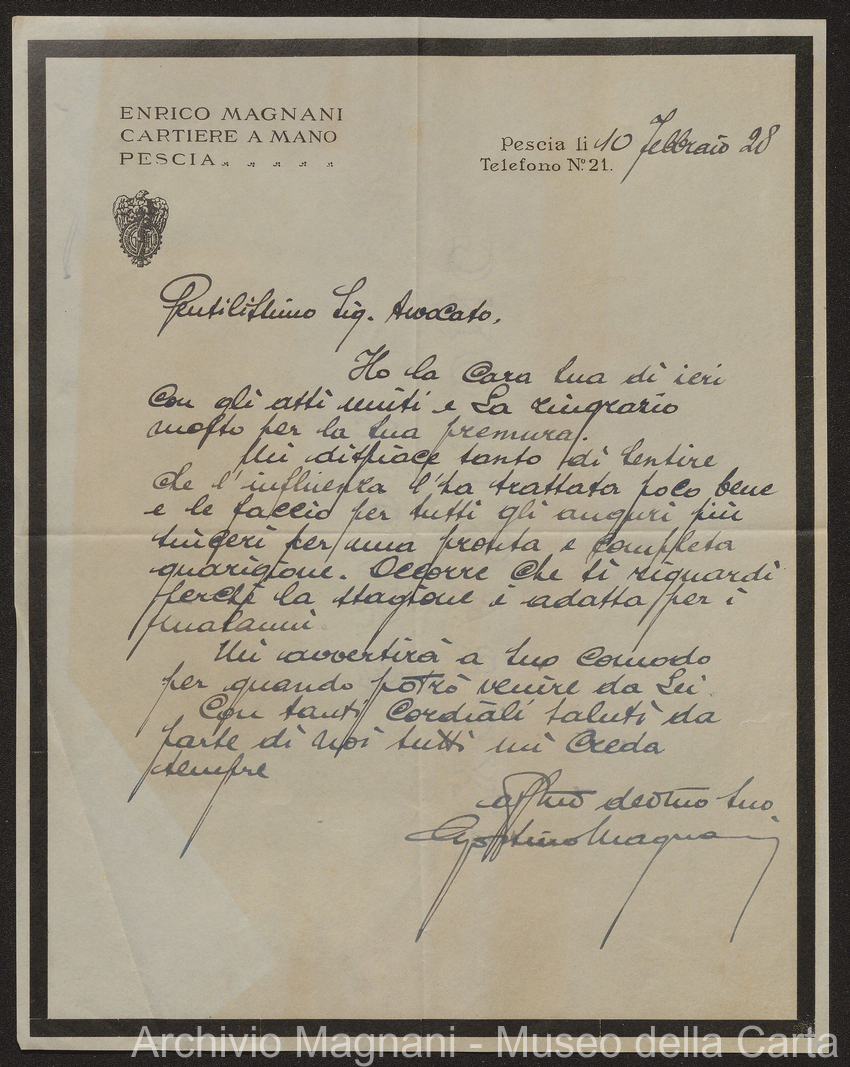 ENRICO MAGNANI
CARTIERE A MANO
PESCIA
Pescia li 10 Febbraio 28
Telefono N.º 21.
Gentilissimo Sig. Avvocato,
Ho la cara sua di ieri
con gli atti uniti e La ringrazio
molto per la sua premura.
Mi dispiace tanto di sentire
che l'influenza l'ha trattata poco bene
e le faccio per tutti gli auguri più
sinceri per una pronta e completa
guarigione. Occorre che si riguardi
perchè la stagione è adatta per i
malanni.
Mi avvertirà a suo comodo
per quando potrò venire da Lei.
Con tanti cordiali saluti da
parte di noi tutti mi creda
sempre
aff.mo dev.mo suo
Agostino Magnani
Archivio Magnani - Museo della Carta